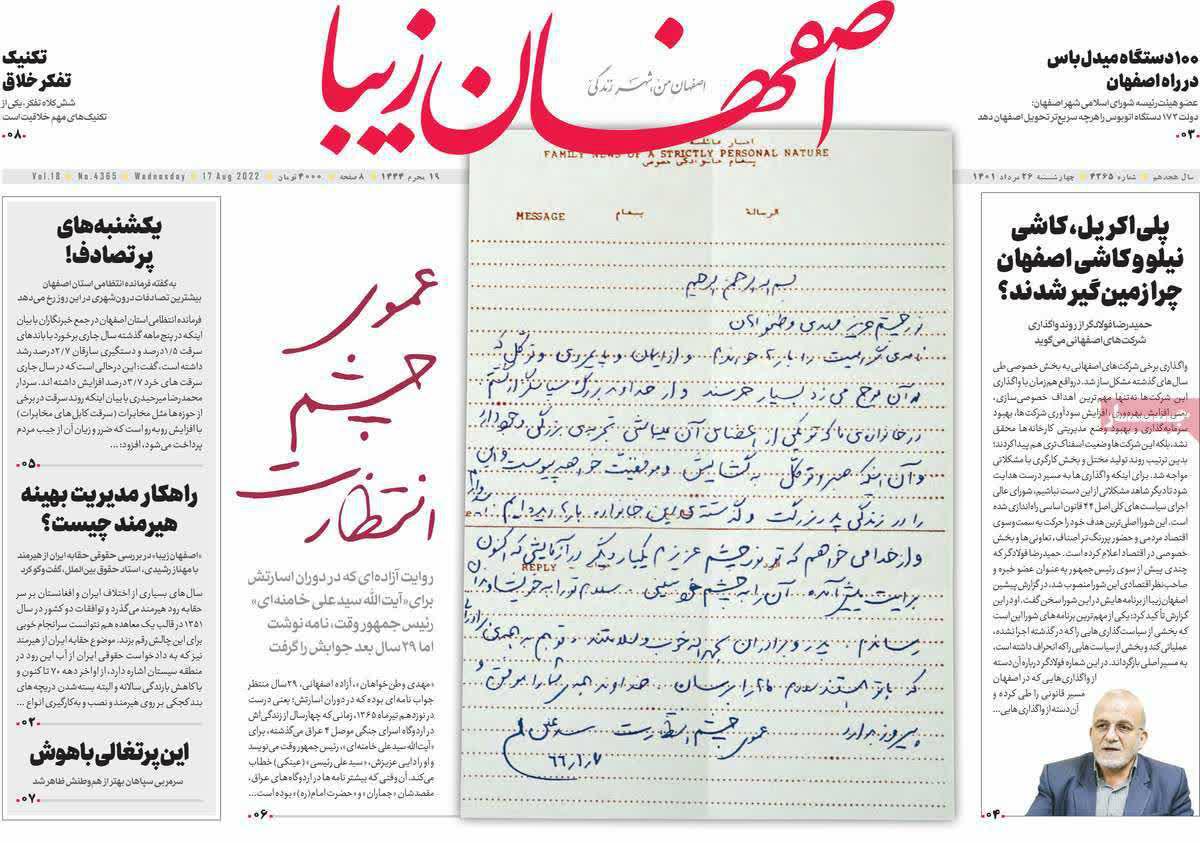 اصفهان زیبا
اصفهان من، شهر زندگی
۱۰۰ دستگاه میدل‌باس
در راه اصفهان
عضو هیئت‌رئیسه شورای اسلامی شهر اصفهان:
دولت ۱۷۲ دستگاه اتوبوس را هرچه سریع‌تر تحویل اصفهان دهد
۰۳
تکنیک
تفکر خلاق
شش کلاه تفکر، یکی از
تکنیک‌های مهم خلاقیت است
۰۸
سال هجدهم شماره ۴۳۶۵ چهارشنبه ۲۶ مرداد ۱۴۰۱
۱۹ محرم ۱۴۴۴ ۸ صفحه ۴۰۰۰ تومان 17 Aug 2022 Wednesday No.4365 Vol.18
پلی‌اکریل، کاشی
نیلو و کاشی اصفهان
چرا زمین‌گیر شدند؟
حمیدرضا فولادگر از روند واگذاری
شرکت‌های اصفهانی می‌گوید
واگذاری برخی شرکت‌های اصفهانی به بخش خصوصی طی
سال‌های گذشته مشکل‌ساز شد. درواقع هم‌زمان با واگذاری
این شرکت‌ها نه‌تنها مهم‌ترین اهداف خصوصی‌سازی،
یعنی افزایش بهره‌وری، افزایش سودآوری شرکت‌ها، بهبود
سرمایه‌گذاری و بهبود وضع مدیریتی کارخانه‌ها محقق
نشد، بلکه این شرکت‌ها وضعیت اسفناک‌تری هم پیدا کردند؛
بدین ترتیب روند تولید مختل و بخش کارگری با مشکلاتی
مواجه شد. برای اینکه واگذاری‌ها به مسیر درست هدایت
شود تا دیگر شاهد مشکلاتی از این دست نباشیم، شورای عالی
اجرای سیاست‌های کلی اصل ۴۴ قانون اساسی راه‌اندازی شده
است. این شورا اصلی‌ترین هدف خود را حرکت به سمت و سوی
اقتصاد مردمی و حضور پررنگ‌تر اصناف، تعاونی‌ها و بخش
خصوصی در اقتصاد اعلام کرده است. حمیدرضا فولادگر که
چندی پیش از سوی رئیس‌جمهور به عنوان عضو خبره و
صاحب‌نظر اقتصادی این شورا منصوب شد، در گزارش پیشین
اصفهان زیبا از برنامه‌هایش در این شورا سخن گفت. او در این
گزارش تأکید کرد: یکی از مهم‌ترین برنامه‌های شورا این است
که بخشی از سیاست‌گذاری‌هایی را که در گذشته اجرا نشده،
عملیاتی کند و بخشی از سیاست‌هایی را که انحراف داشته است،
به مسیر اصلی بازگرداند. در این شماره فولادگر درباره آن دسته
از واگذاری‌هایی که در اصفهان
مسیر قانونی را طی کرده و
آن‌دسته از واگذاری‌هایی...
۰۴
FAMILY NEWS OF A STRICTLY PERSONAL NATURE
پیغام خانوادگی خصوصی
MESSAGE پیغام الرسالة
بسم الله الرحمن الرحیم
نورچشم عزیز مهدی وطنخواهان
نامه‌ی گرامیت را بارها خواندم و از ایمان و پایمردی و توکلی که
در آن موج می‌زد بسیار خرسند و از خداوند بزرگ سپاسگزار گشتم
و از خدا می‌خواهم که تو نورچشم عزیزم یکبار دیگر در آزمایشی که اکنون
REPLY
برایت پیش آمده، آن را به چشم خود ببینی. سلام تو را به خویشاوندان
پیروز بدارد عموی چشم انتظارت سید علی
عموی
چشم
انتظارت
روایت آزاده‌ای که در دوران اسارتش
برای «آیت‌الله سیدعلی خامنه‌ای»
رئیس‌جمهور وقت، نامه نوشت
اما ۲۹ سال بعد جوابش را گرفت
«مهدی وطن‌خواهان»، آزاده اصفهانی، ۲۹ سال منتظر
جواب نامه‌ای بوده که در دوران اسارتش؛ یعنی درست
در نوزدهم تیرماه ۱۳۶۵، زمانی که چهارسال از زندگی‌اش
در اردوگاه اسرای جنگی موصل ۴ عراق می‌گذشته، برای
«آیت‌الله سیدعلی خامنه‌ای»، رئیس‌جمهور وقت می‌نویسد
و او را دایی عزیزش، «سید علی رئیسی» (عینکی) خطاب
می‌کند. آن وقتی که بیشتر نامه‌ها در اردوگاه‌های عراق،
مقصدشان «جماران» و «حضرت امام(ره)» بوده است...
۰۶
یکشنبه‌های
پرتصادف!
به گفته فرمانده انتظامی استان اصفهان
بیشترین تصادفات درون‌شهری در این روز رخ می‌دهد
فرمانده انتظامی استان اصفهان در جمع خبرنگاران با بیان
اینکه در پنج ماهه گذشته سال جاری برخورد با باندهای
سرقت ۱/۵ درصد و دستگیری سارقان ۲/۷ درصد رشد
داشته است، گفت: این درحالی است که در سال جاری
سرقت‌های خرد ۳/۷ درصد افزایش داشته اند. سردار
محمدرضا میرحیدری با بیان اینکه روند سرقت در برخی
از حوزه‌ها مثل مخابرات (سرقت کابل‌های مخابرات)
با افزایش روبه‌رو است که ضرر و زیان آن از جیب مردم
پرداخت می‌شود، افزود:...
۰۵
راهکار مدیریت بهینه
هیرمند چیست؟
«اصفهان زیبا» در بررسی حقوقی حقابه ایران از هیرمند
با مهناز رشیدی، استاد حقوق بین‌الملل، گفت‌وگو کرد
سال‌های بسیاری از اختلاف ایران و افغانستان بر سر
حقابه رود هیرمند می‌گذرد و توافقات دو کشور در سال
۱۳۵۱ در قالب یک معاهده هم نتوانست سرانجام خوبی
برای این چالش رقم بزند. موضوع حقابه ایران از هیرمند
نیز که به دادخواست حقوقی ایران از آب این رود در
منطقه سیستان اشاره دارد، از اواخر دهه ۷۰ تا کنون و
با کاهش بارندگی سالانه و البته بسته‌شدن دریچه های
بند کجکی بر روی هیرمند و نصب و به‌کارگیری انواع ...
۰۲
این پرتغالی باهوش
سرمربی سپاهان بهتر از هم‌وطنش ظاهر شد
۰۷